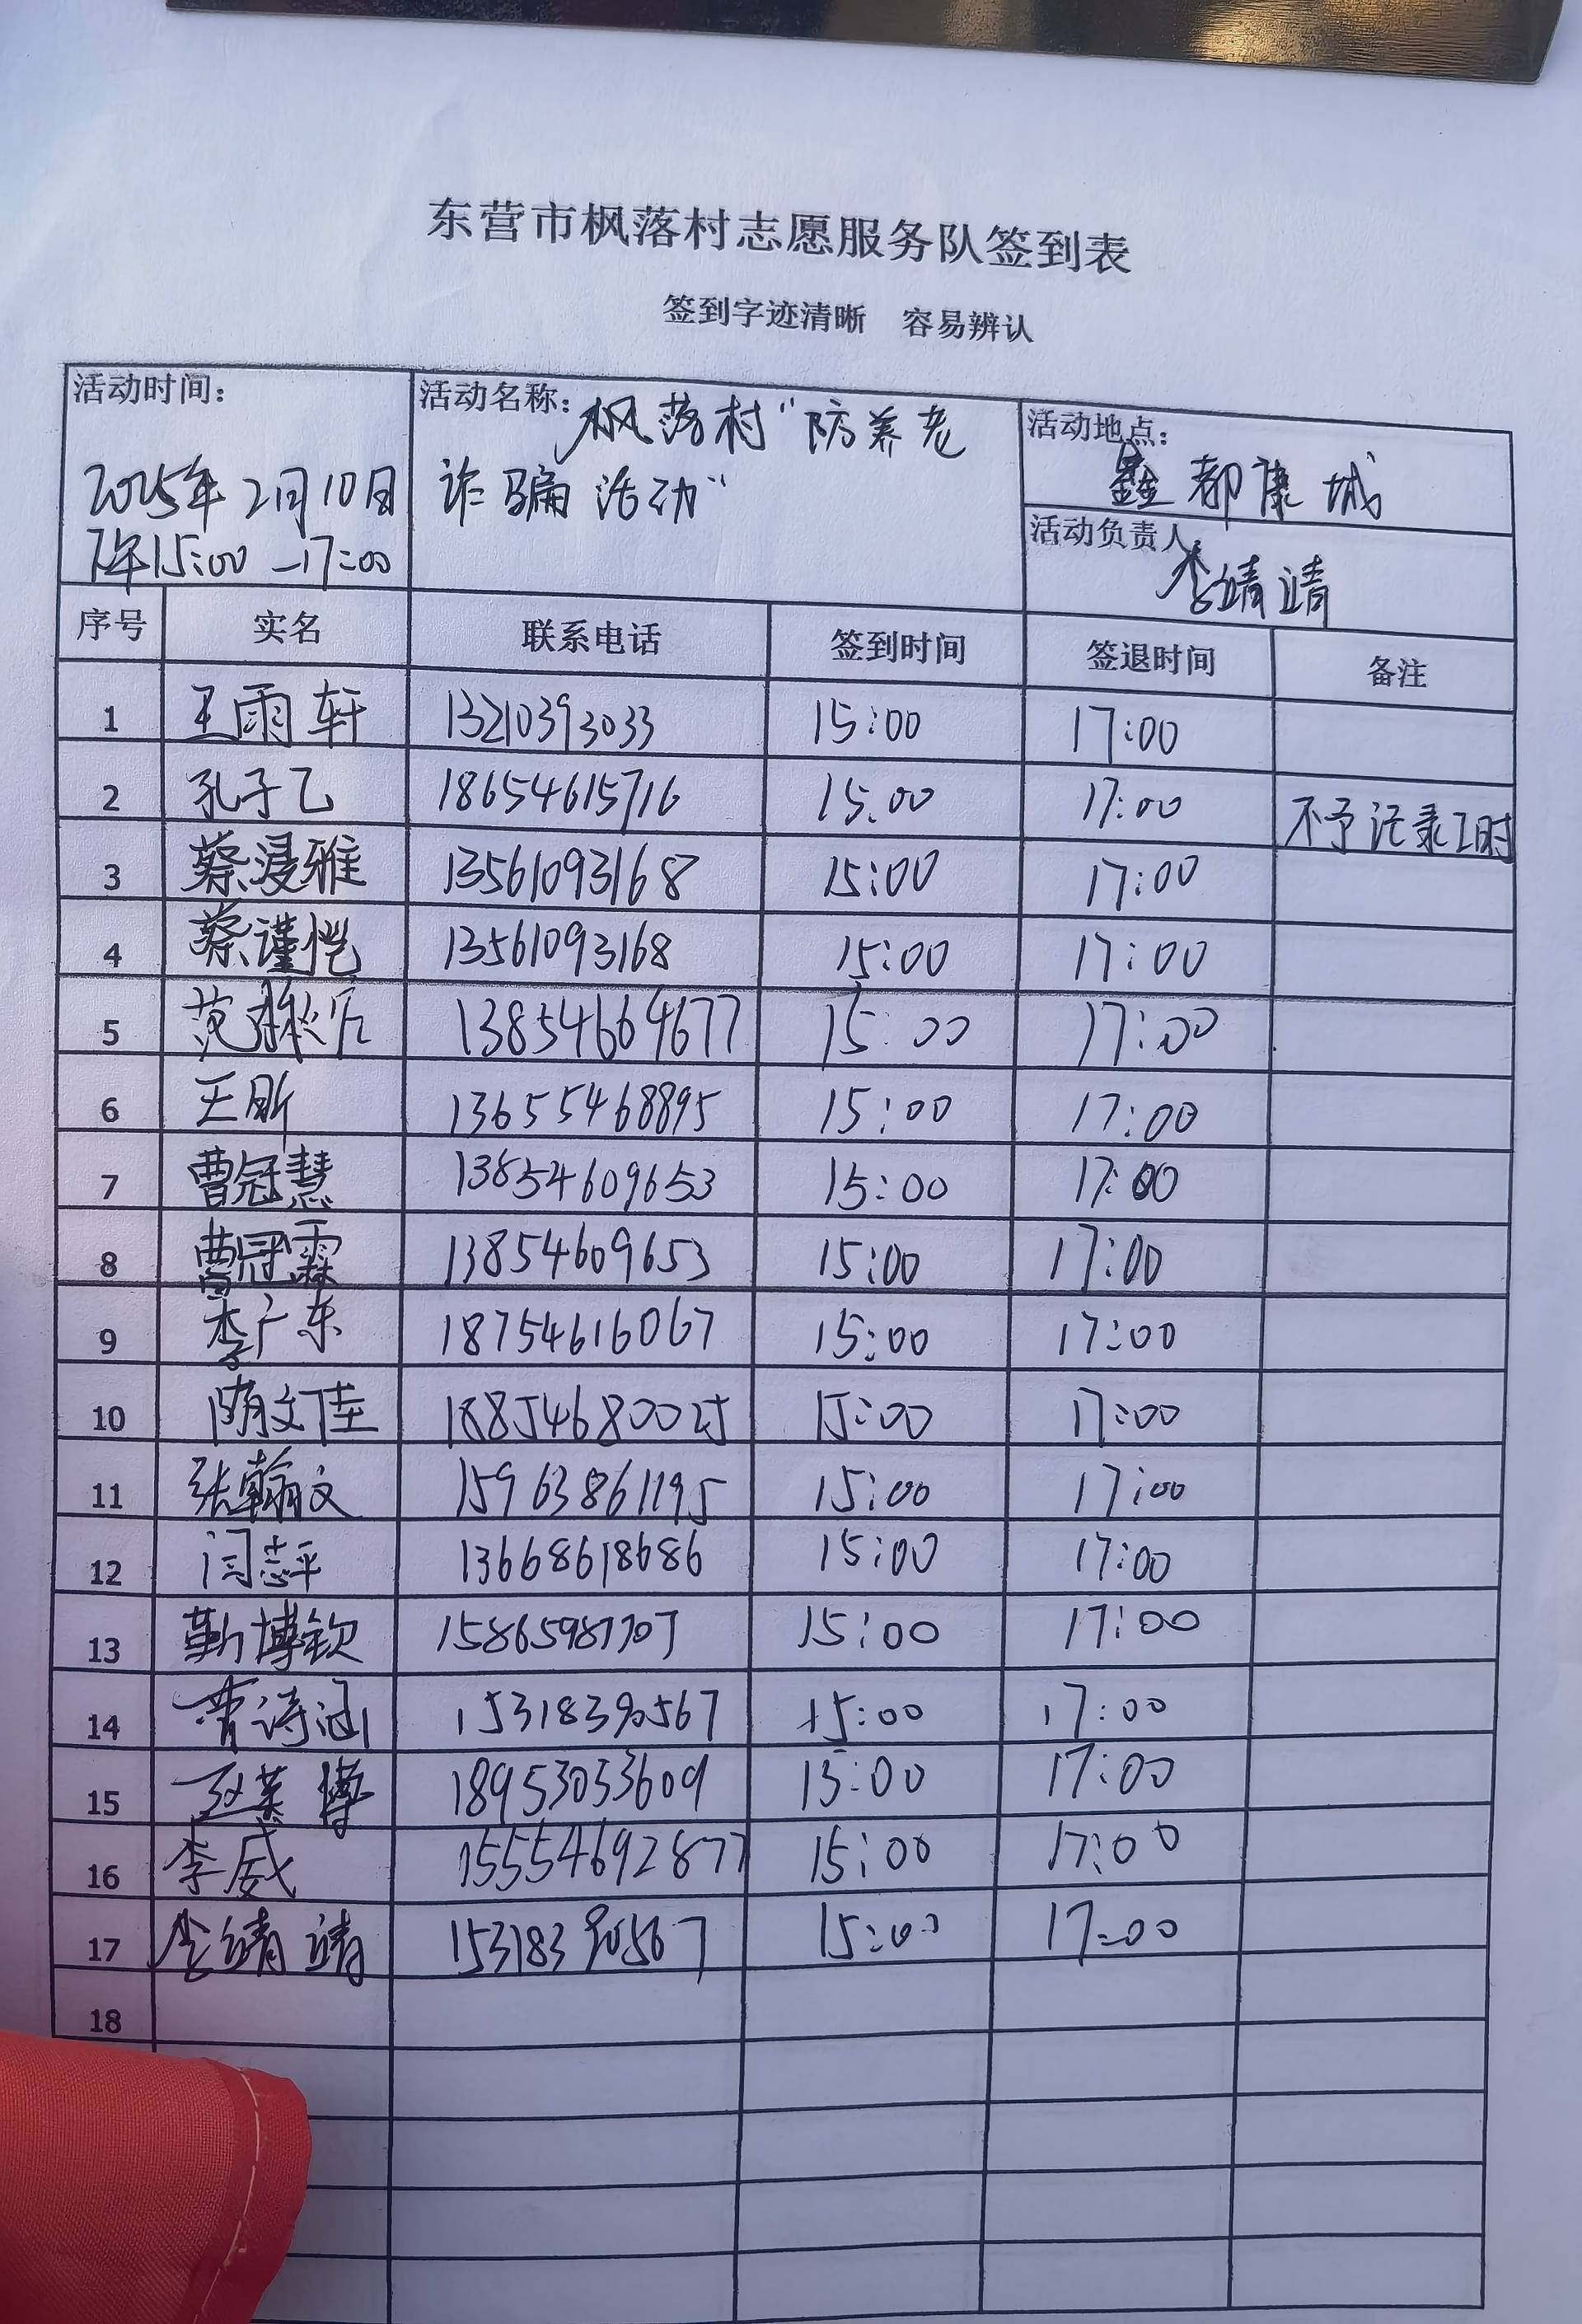 东营市枫落村志愿服务队签到表
签到字迹清晰 容易辨认
活动时间：
2025年2月10日
下午15:00-17:00
活动名称：枫落村“防养老
诈骗活动”
活动地点：
鑫都康城
活动负责人：
李靖靖
序号 实名 联系电话 签到时间 签退时间 备注
1 王雨轩 13210393033 15:00 17:00
2 孔子乙 18654615716 15:00 17:00 不予记录工时
3 蔡浸雅 13561093168 15:00 17:00
4 蔡谨恺 13561093168 15:00 17:00
5 范 13854664677 15:00 17:00
6 王昕 13655468895 15:00 17:00
7 曹冠慧 13854609653 15:00 17:00
8 曹冠霖 13854609653 15:00 17:00
9 李广东 18754616067 15:00 17:00
10 隋文佳 15:00 17:00
11 张翰文 15963861195 15:00 17:00
12 闫志平 13668618686 15:00 17:00
13 靳博钦 15865987707 15:00 17:00
14 曹诗涵 15318390567 15:00 17:00
15 18953033609 15:00 17:00
16 李威 15554692877 15:00 17:00
17 李靖靖 15318390567 15:00 17:00
18